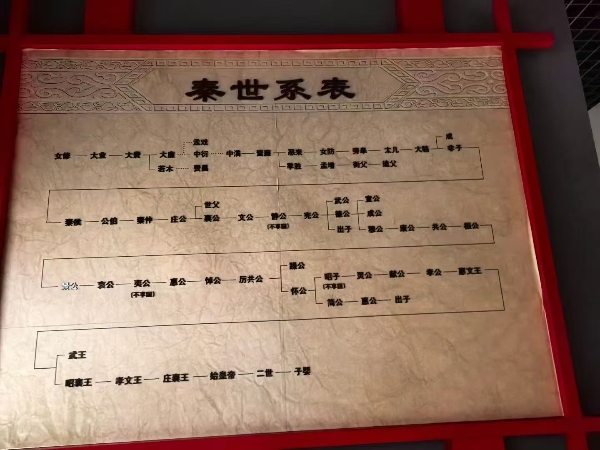 秦世系表
孟戏 成
女修 大业 大费 大廉 中衍 中潏 蜚廉 恶来 女防 旁皋 太几 大骆 非子
若木 费昌 季胜 孟增 衡父 造父
世父 武公 宣公
秦侯 公伯 秦仲 庄公 襄公 文公 静公 宪公 德公 成公
(不享国) 出子 穆公 康公 共公 桓公
躁公
景公 哀公 夷公 惠公 悼公 厉共公 昭子 灵公 献公 孝公 惠文王
(不享国) 怀公 (不享国)
简公 惠公 出子
武王
昭襄王 孝文王 庄襄王 始皇帝 二世 子婴